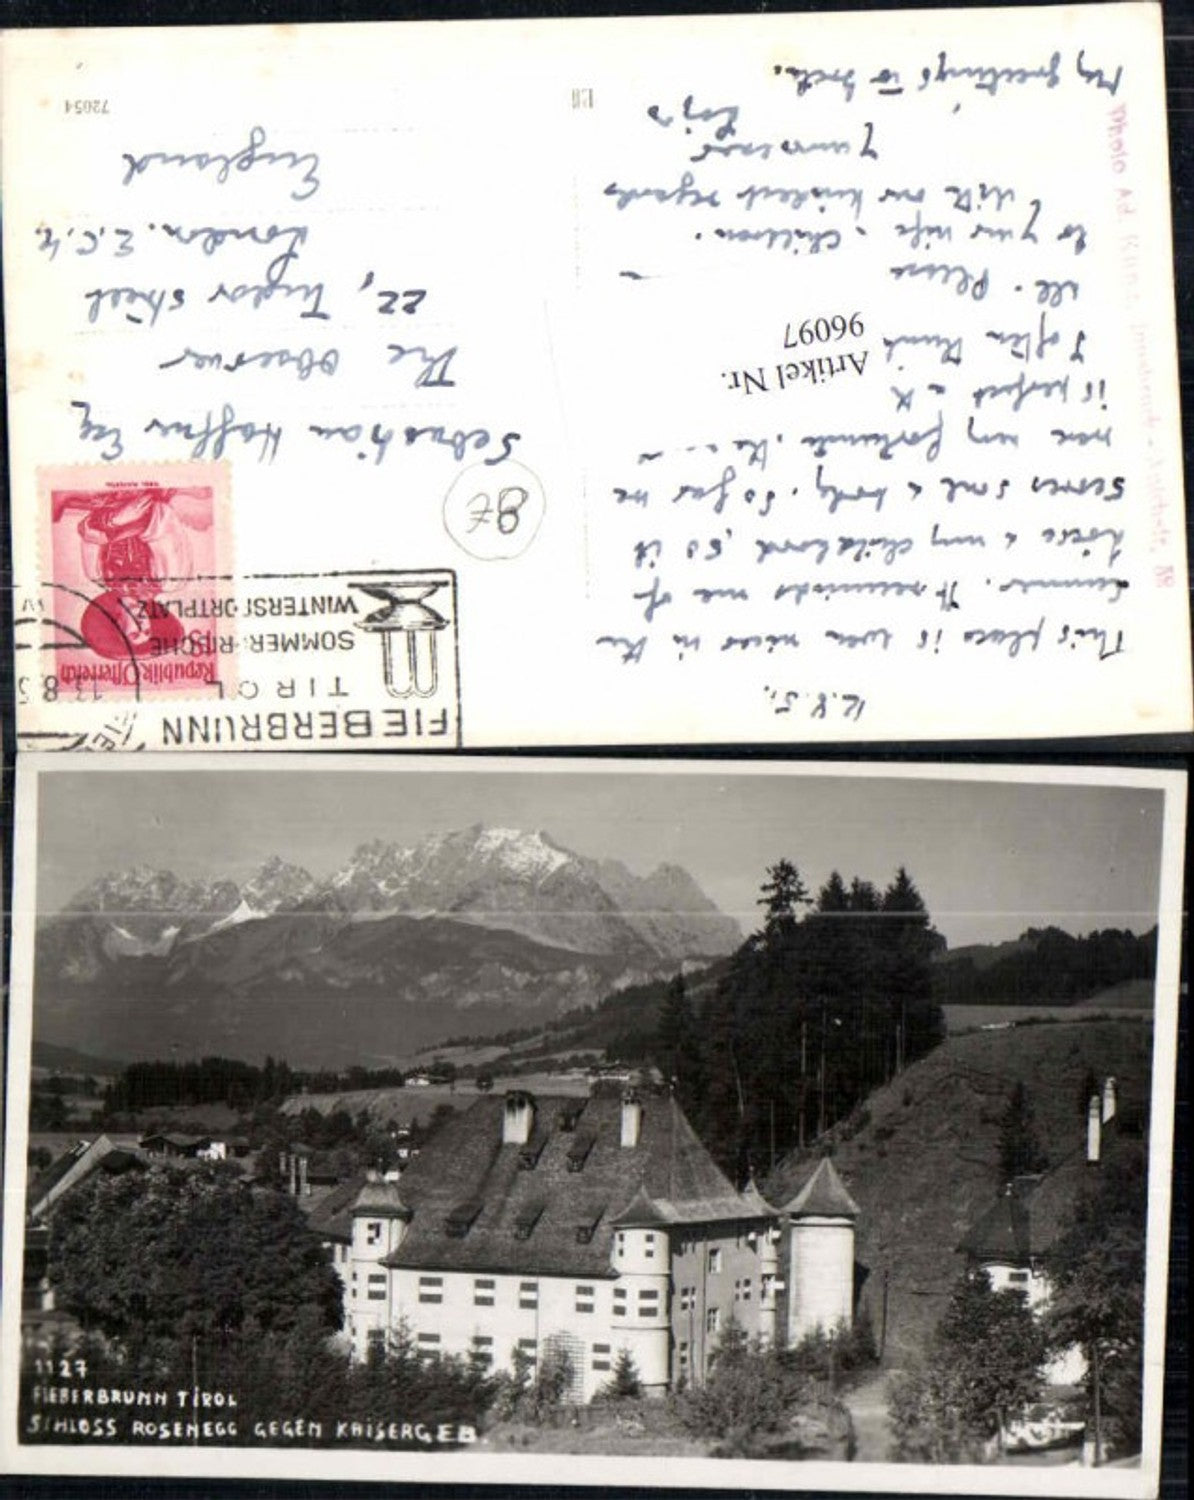 12.8.51.
This place is even nicer in the
summer. It reminds me of
home & my childhood, so it
serves soul & body. So far we
were very fortunate. The
is perfect
I often think
all. Please
to your wife & children.
With our kindest regards
Yours ever
My greetings to
FIEBERBRUNN
TIROL
SOMMERFRISCHE
WINTERSPORTPLATZ
13.8.5
Republik Österreich
8€
Sebastian Haffner Esq
The Observer
22, Tudor Street
London. E.C.4.
England
72054
Artikel Nr.
96097
1127
FIEBERBRUNN TIROL
SCHLOSS ROSENEGG GEGEN KAISERGEB.